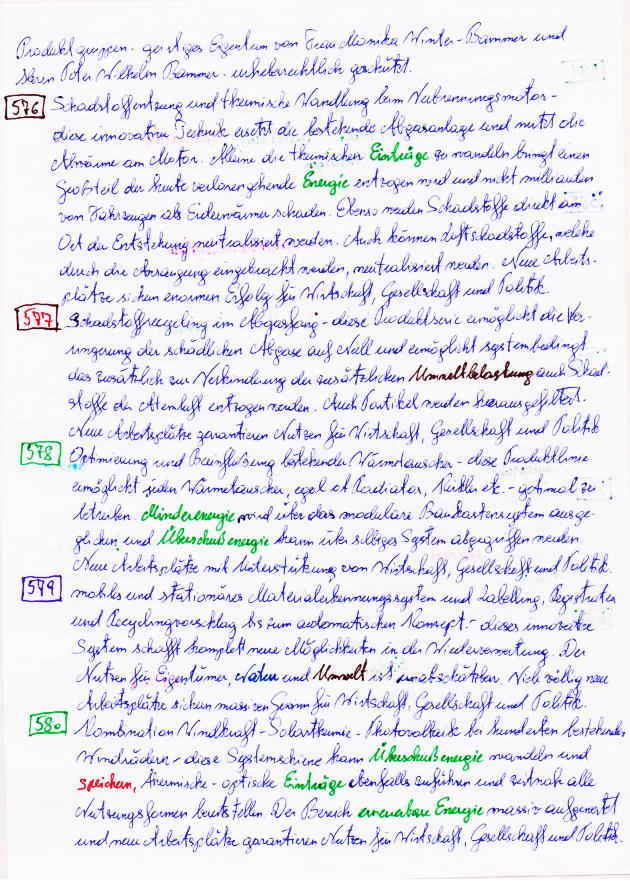 Produktgruppen - geistiges Eigentum von Frau Monika Winter-Bammer und
Herrn Peter Wilhelm Bammer - urheberrechtlich geschützt.
576 Schadstoffentzug und thermische Wandlung beim Verbrennungsmotor -
diese innovative Technik ersetzt die bestehende Abgasanlage und nutzt die
Abwärme am Motor. Alleine die thermischen Einträge zu wandeln bringt einen
Großteil der heute verlorengehende Energie entzogen wird und nicht milliarden
von Fahrzeugen als Erderwärmer schaden. Ebenso werden Schadstoffe direkt am
Ort der Entstehung neutralisiert werden. Auch können Luftschadstoffe, welche
durch die Ansaugung eingebracht werden, neutralisiert werden. Neue Arbeits-
plätze sichern enormen Erfolg für Wirtschaft, Gesellschaft und Politik.
577 Schadstoffrecycling im Abgasfang - diese Produktserie ermöglicht die Ver-
ringerung der schädlichen Abgase auf Null und ermöglicht systembedingt
das zusätzlich zur Verhinderung der zusätzlichen Umweltbelastung auch Schad-
stoffe der Atemluft entzogen werden. Auch Partikel werden herausgefiltert.
Neue Arbeitsplätze garantieren Nutzen für Wirtschaft, Gesellschaft und Politik
578 Optimierung und Beinflußung bestehender Wärmetauscher - diese Produktlinie
ermöglicht jeden Wärmetauscher, egal ob Radiator, Kühler etc. - optimal zu
betreiben. Minderenergie wird über das modulare Baukastensystem ausge-
glichen und Überschußenergie kann über selbiges System abgegriffen werden
Neue Arbeitsplätze mit Unterstützung von Wirtschaft, Gesellschaft und Politik.
579 mobiles und stationäres Materialerkennungssystem und Labelling, Registrieren
und Recyclingvorschlag bis zum automatischen Konzept - dieses innovative
System schafft komplett neue Möglichkeiten in der Wiederverwertung. Der
Nutzen für Eigentümer, Natur und Umwelt ist unabschätzbar. Viele völlig neue
Arbeitsplätze sichern massiven Gewinn für Wirtschaft, Gesellschaft und Politik.
580 Kombination Windkraft - Solarthermie - Photovoltaik bei hunderten bestehenden
Windrädern - diese Systemschiene kann Überschußenergie wandeln und
speichern, thermische - optische Einträge ebenfalls zuführen und zeitnah alle
Nutzungsformen bereitstellen. Der Bereich erneuerbare Energie massiv aufgewertet
und neue Arbeitsplätze garantieren Nutzen für Wirtschaft, Gesellschaft und Politik.